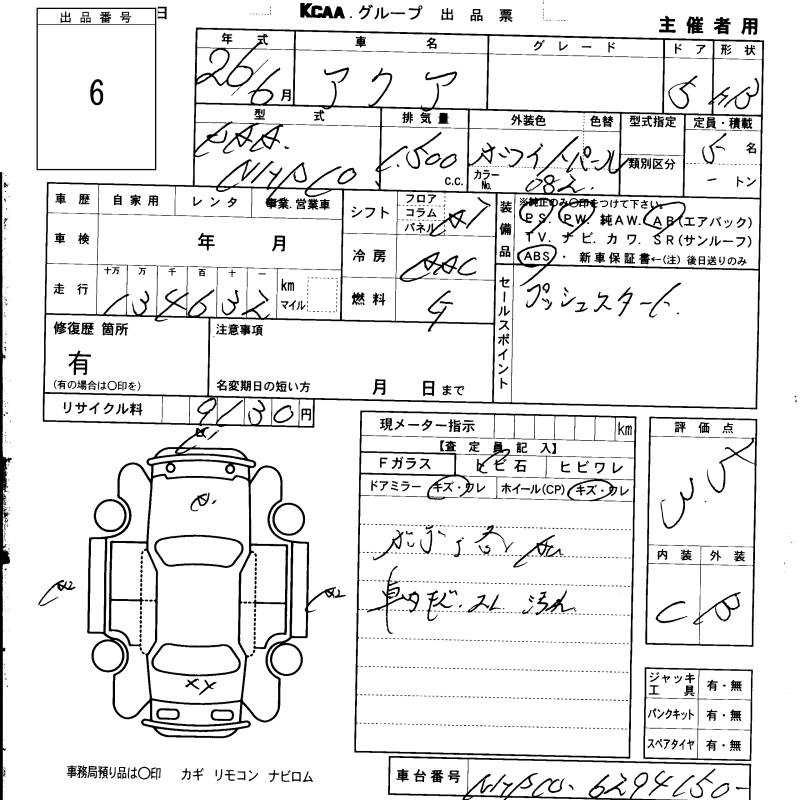 日 KCAA.グループ 出品票 主催者用
出品番号
6
年式 車名 グレード ドア 形状
26/6月 アクア 5 HB
型式 排気量 外装色 色替 型式指定 定員・積載
DAA- 1,500 ホワイトパール 5名
NHP10 c.c. カラーNo. 082 類別区分 - トン
車歴 自家用 レンタ 事業.営業車
シフト フロア コラム パネル AT
装備品 ※純正のみ〇印をつけて下さい。
PS. PW. 純AW. AB(エアバック)
TV. ナビ. カワ. SR(サンルーフ)
ABS・ 新車保証書←(注) 後日送りのみ
車検 年 月
冷房 AAC
走行 十万 万 千 百 十 一
134632 km マイル
燃料 G
セールスポイント
プッシュスタート.
修復歴 箇所
有
(有の場合は〇印を)
注意事項
名変期日の短い方 月 日まで
リサイクル料 9130円
現メーター指示 km
【査定員記入】
Fガラス トビ石 ヒビワレ
ドアミラー キズ・ワレ ホイール(CP) キズ・ワレ
車内
評価点
3.5
内装 外装
C B
A2
A2
XX
ジャッキ 工具 有・無
パンクキット 有・無
スペアタイヤ 有・無
事務局預り品は〇印 カギ リモコン ナビロム
車台番号 NHP10-6294150-